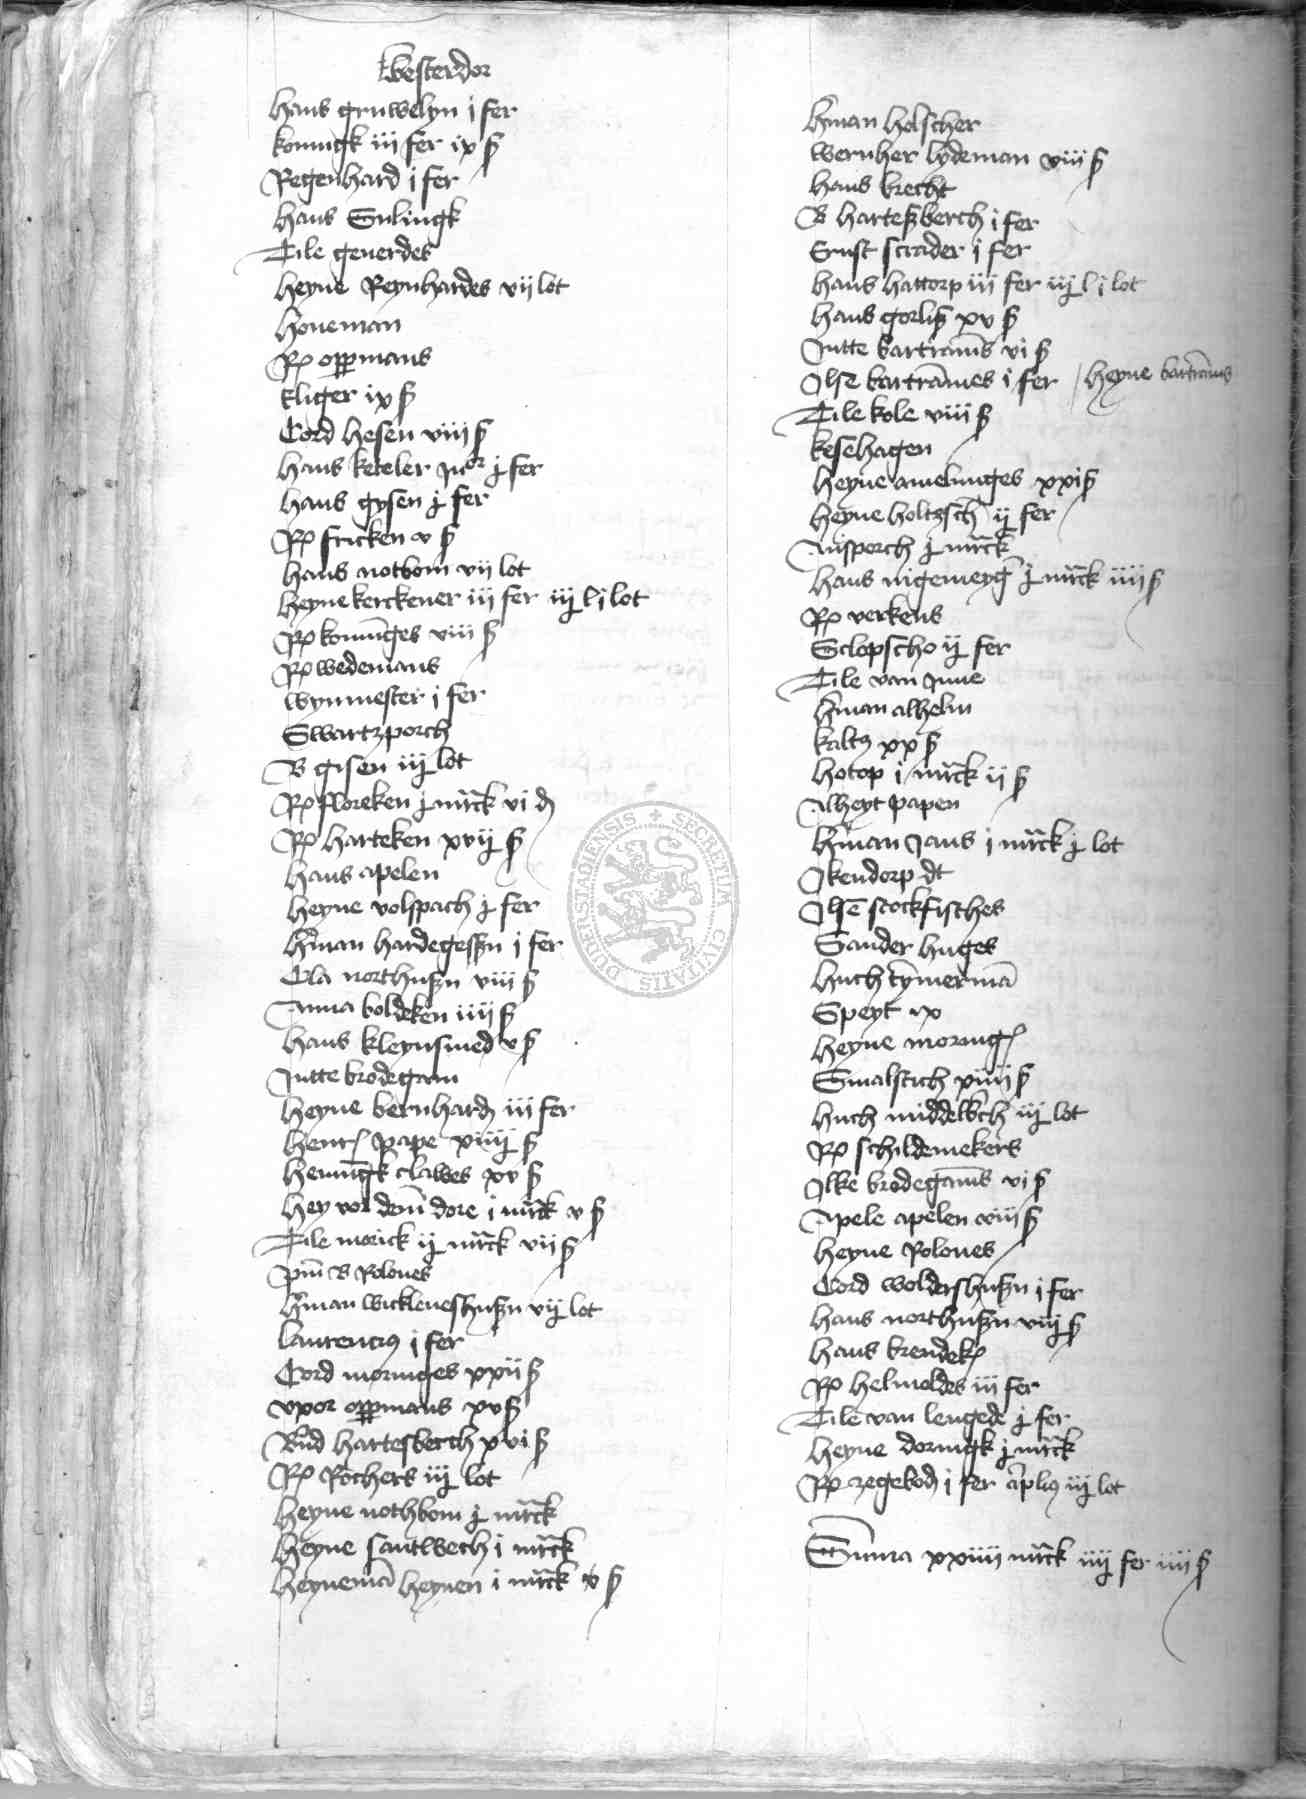 Westerdor
hans gruwelyn i fer
koningk iii fer ix ß
Regenhard i fer
hans Sulingk
Tile geuerdes
heyne Reynhardes vij lot
honeman
Rͦ oppmans
kliger ix ß
Cord hesen viii ß
hans keteler Juor j fer
hans gysen j fer
fricken v ß
hans notbom vij lot
heyne kerckener iii fer iij l i lot
koninges viii ß
wedemans
wynmester i fer
Swartzporch
B gisen iij lot
floreken j mrck vi d
harteken xvij ß
hans apelen
heyne volspach j fer
herman hardegessn i fer
Cla northusn viii ß
Anna boldeken iiij ß
hans kleynsmed v ß
Jutte brodegam
heyne bernhard iii fer
henr pape xiiij ß
heningk clawes xv ß
hey vor dem dore i mrck v ß
Tile morick ij mrck vii ß
B Roloues
herman wickleueshusn vij lot
laurencius i fer
Cord moringes xxii ß
vxor oppmans xv ß
Bernd hartesberch xvi ß
Rochers iij lot
heyne nothbom j mrck
heyne santwech i mrck
heyneman heynen i mrck v ß
herman holscher
wernher lydeman viii ß
hans brecht
B hartesberch i fer
Ernst scrader i fer
hans hattorp iii fer iij l i lot
hans gorlis xv ß
Jutte bartrams vi ß
Ilse bartrames i fer / heyne bartrams
Tile kole viii ß
kesehagen
heyne amelunges xxi ß
heyne holtzsch ij fer
Nisporch j mrck
hans nigemeyger j mrck iiii ß
verkens
Sclopscho ij fer
Tile van June
herman alhelm
kaltz xx ß
hotop i mrck ii ß
Alheyt papen
herman Jans i mrck j lot
Ikendorp dt
Ilse stockfisches
Sander huges
huch tymerman
Speyt ix
heyne moring
Smalstich xiiii ß
huch middelb'ch iij lot
schildemekers
Ilke brodegams vi ß
Apele apelen viii ß
heyne Roloues
Cord woldershusn i fer
hans northusn viij ß
hans brendek
helmoldes iii fer
Tile van lengede j fer
heyne doringk j mrck
zegebod i fer aplius iij lot
Summa xxiiii mrck iiij fer iiii ß
DUDERSTADIENSIS + SECRETUM CIVITATIS